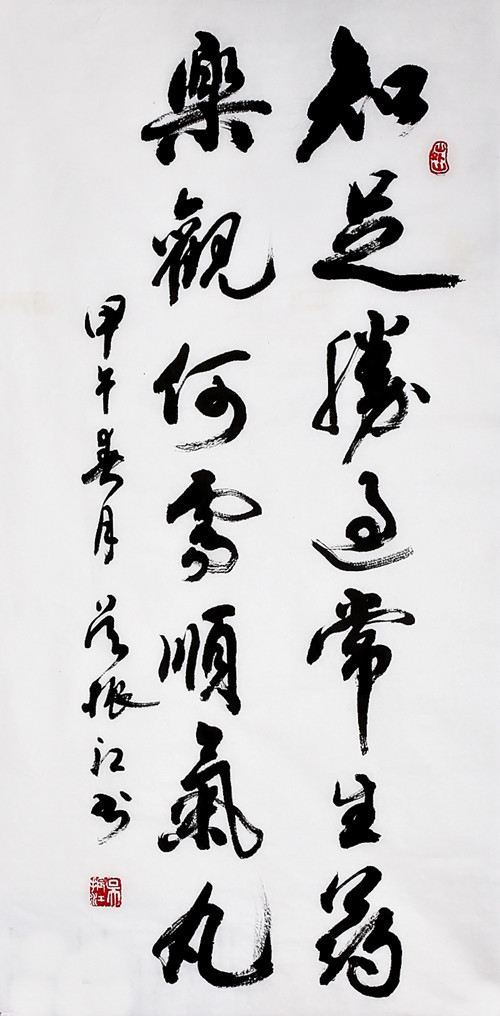 知足勝過常生葯
樂觀何需順氣丸
甲午春月 吴振江书
吴振江